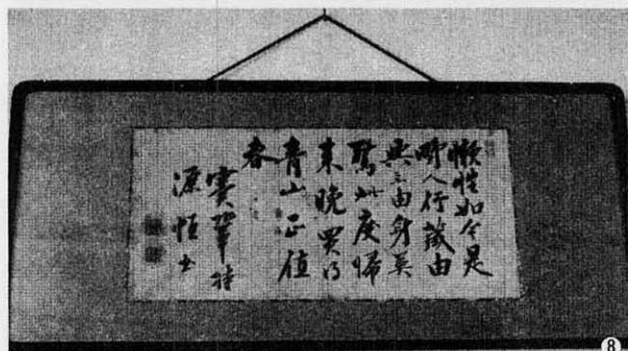 懶性如今是
野人行蔵由
興不由身莫
驚此度帰
来晩買得
青山正値
春
竇鞏詩
源恒書
8